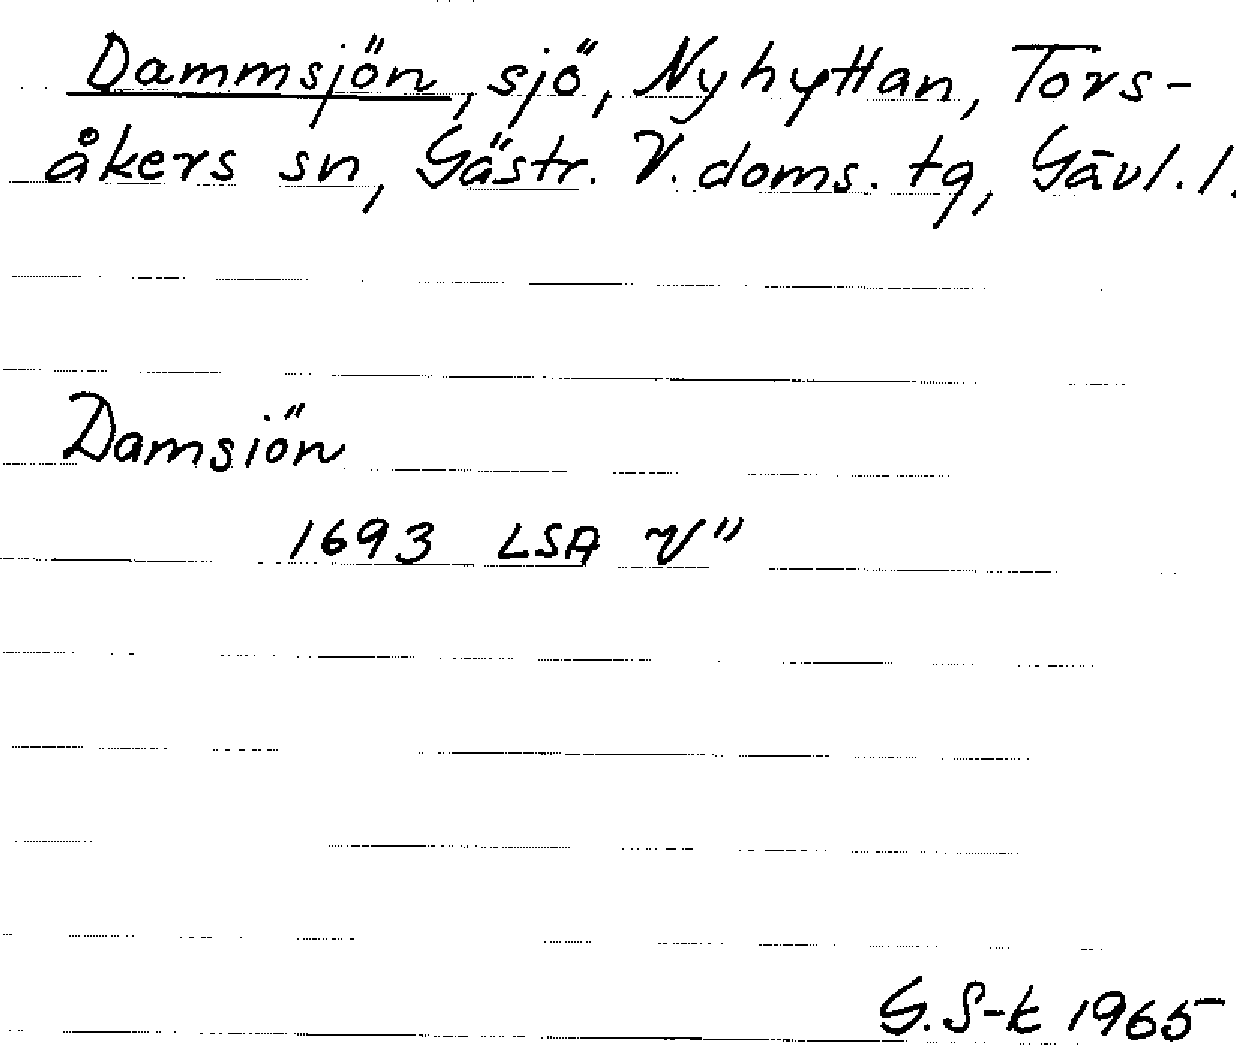 Dammsjön, sjö, Nyhyttan, Tors-
åkers sn, Gästr. V. doms. tg, Gävl. l.
Damsiön
1693 LSA V"
G. S-k 1965